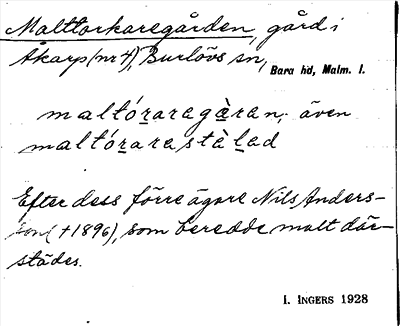 Malttorkaregården, gård i
Åkarp (nr 4), Burlövs sn,
Bara hd, Malm. l.
maltóraragà̱ran, även
maltórarastèlad
Efter dess förre ägare Nils Anders-
son († 1896), som beredde malt där-
städes.
I. INGERS 1928